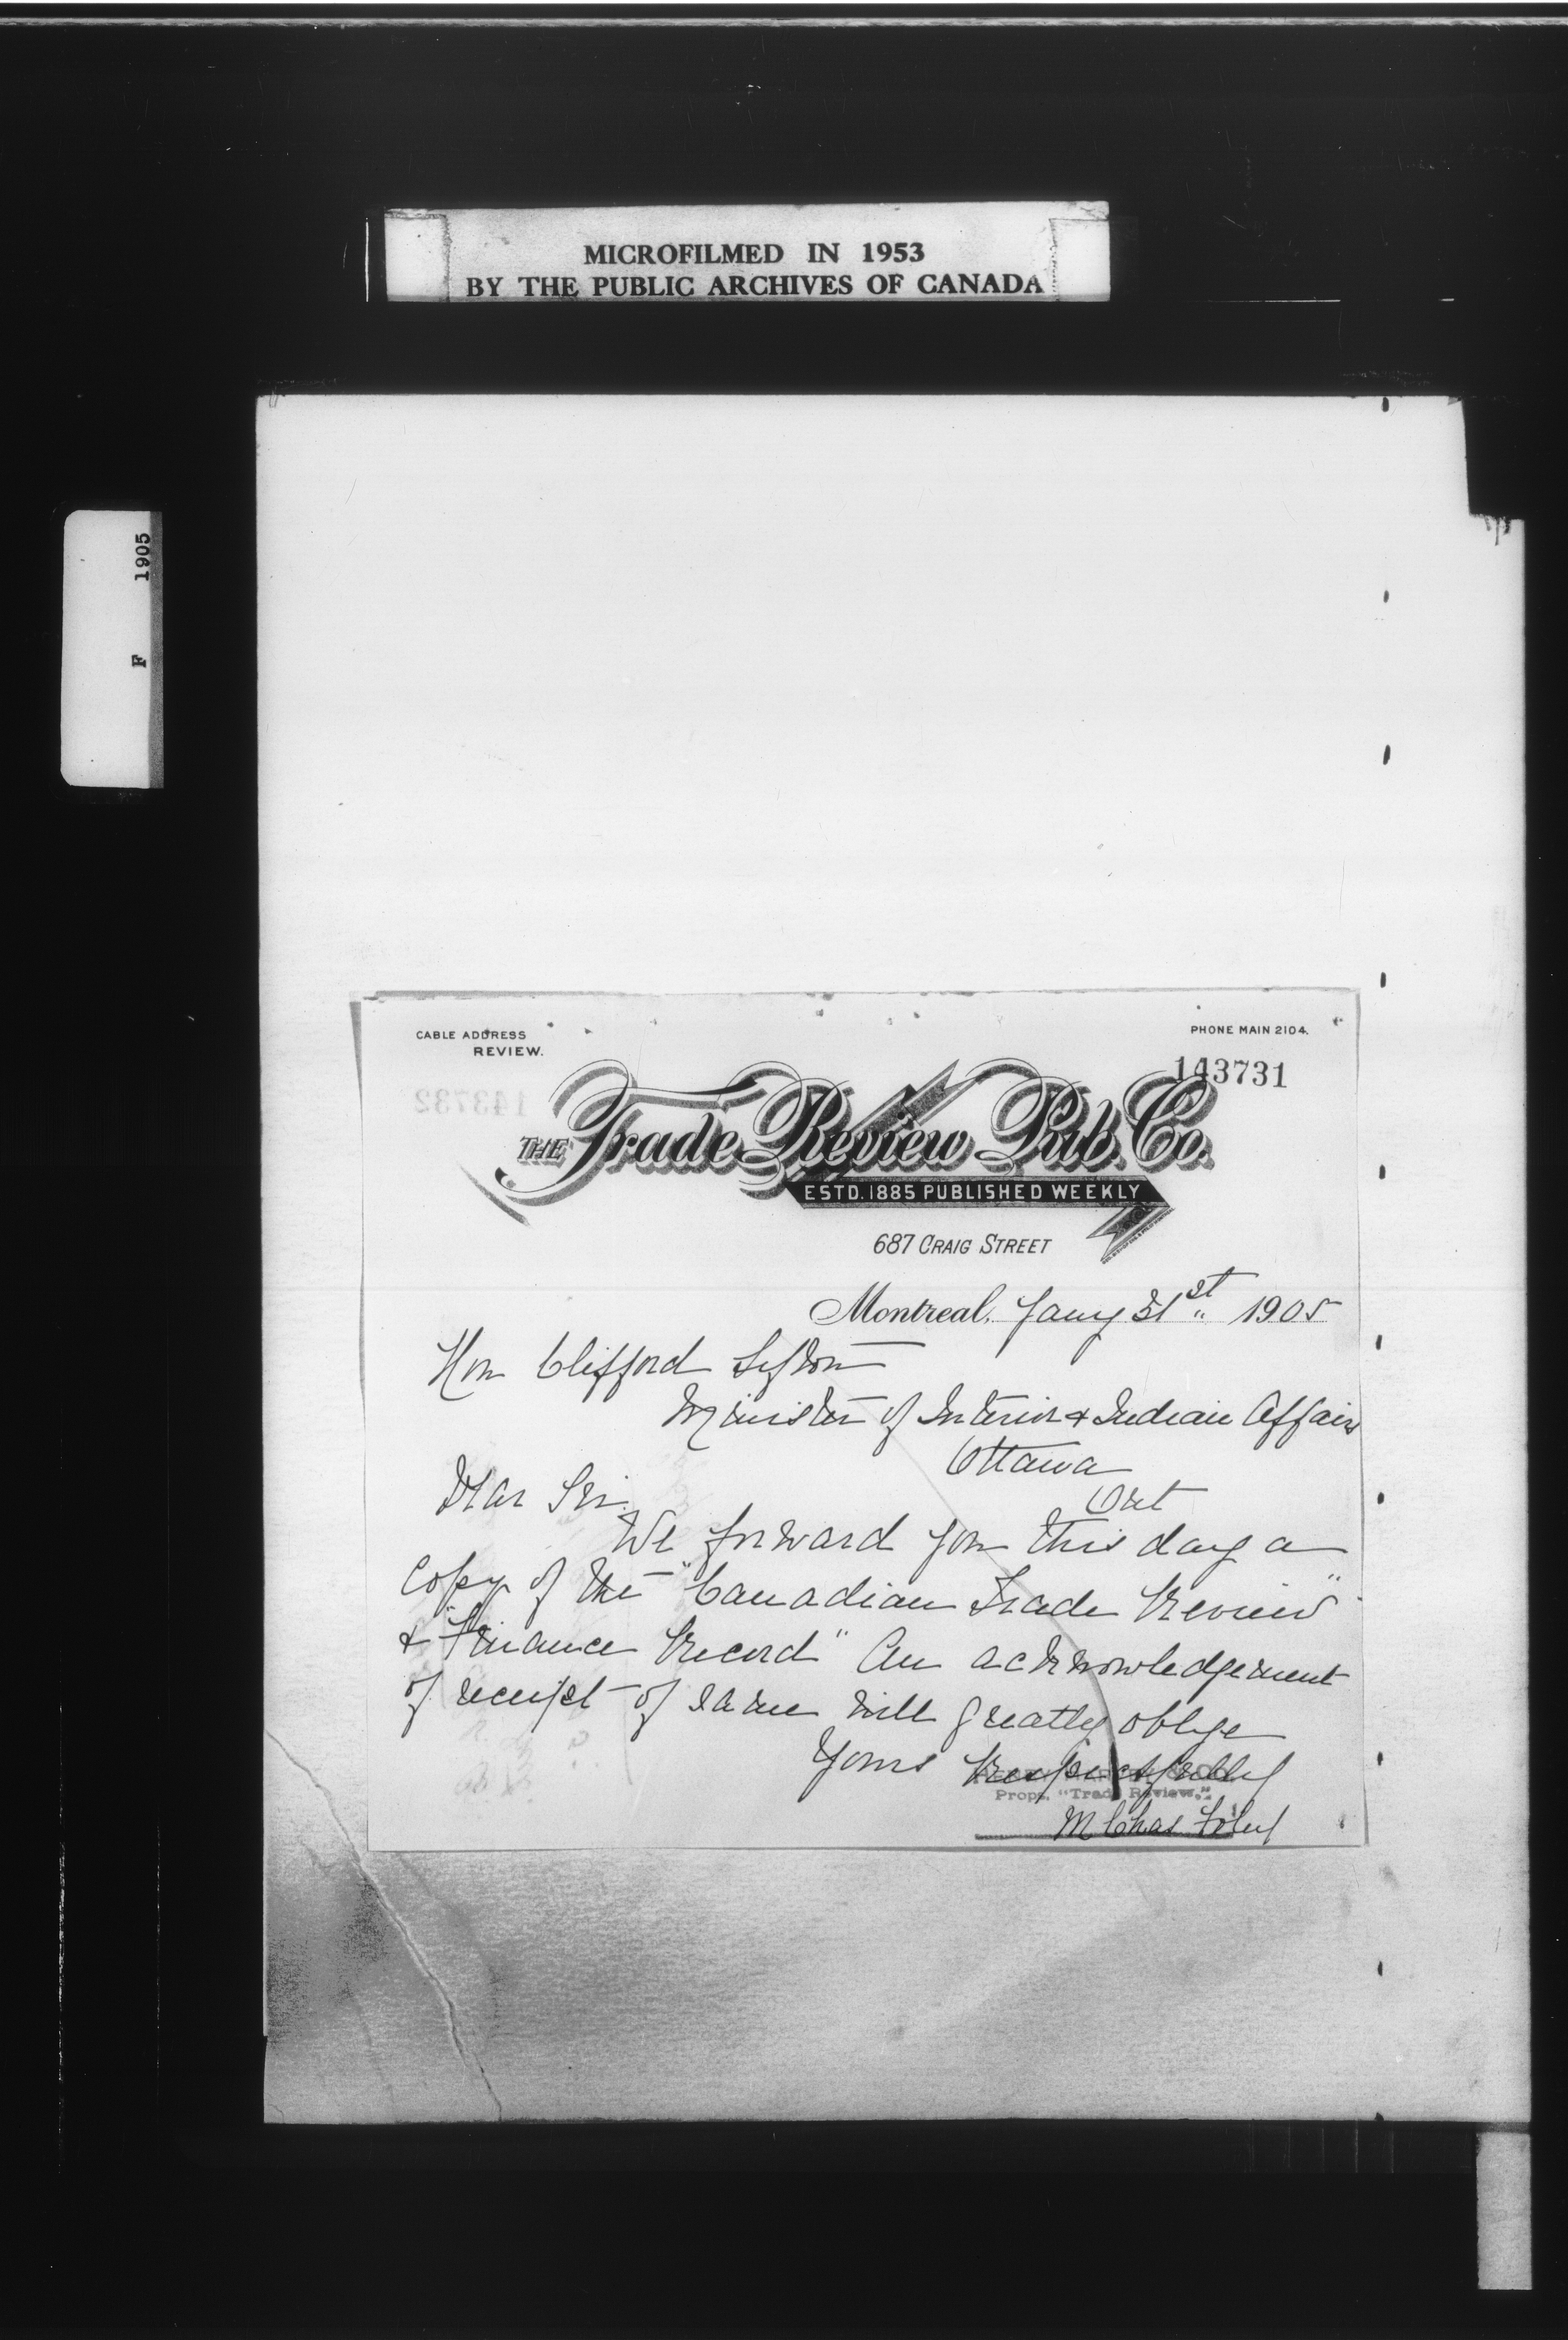 MICROFILMED IN 1953
BY THE PUBLIC ARCHIVES OF CANADA
F 1905
CABLE ADDRESS
REVIEW.
PHONE MAIN 2104.
143731
143732
THE Trade Review Pub. Co.
ESTD. 1885 PUBLISHED WEEKLY
687 CRAIG STREET
Montreal, Jany 31st 1905
Hon Clifford Sifton
Minister of Interior & Indian Affairs
Ottawa
Ont
Dear Sir.
We forward you this day a
Copy of the "Canadian Trade Review"
& "Finance Record" An acknowledgement
of receipt of same will greatly oblige
Yours Respectfully
Props. "Trade Review."
M Chas Foley